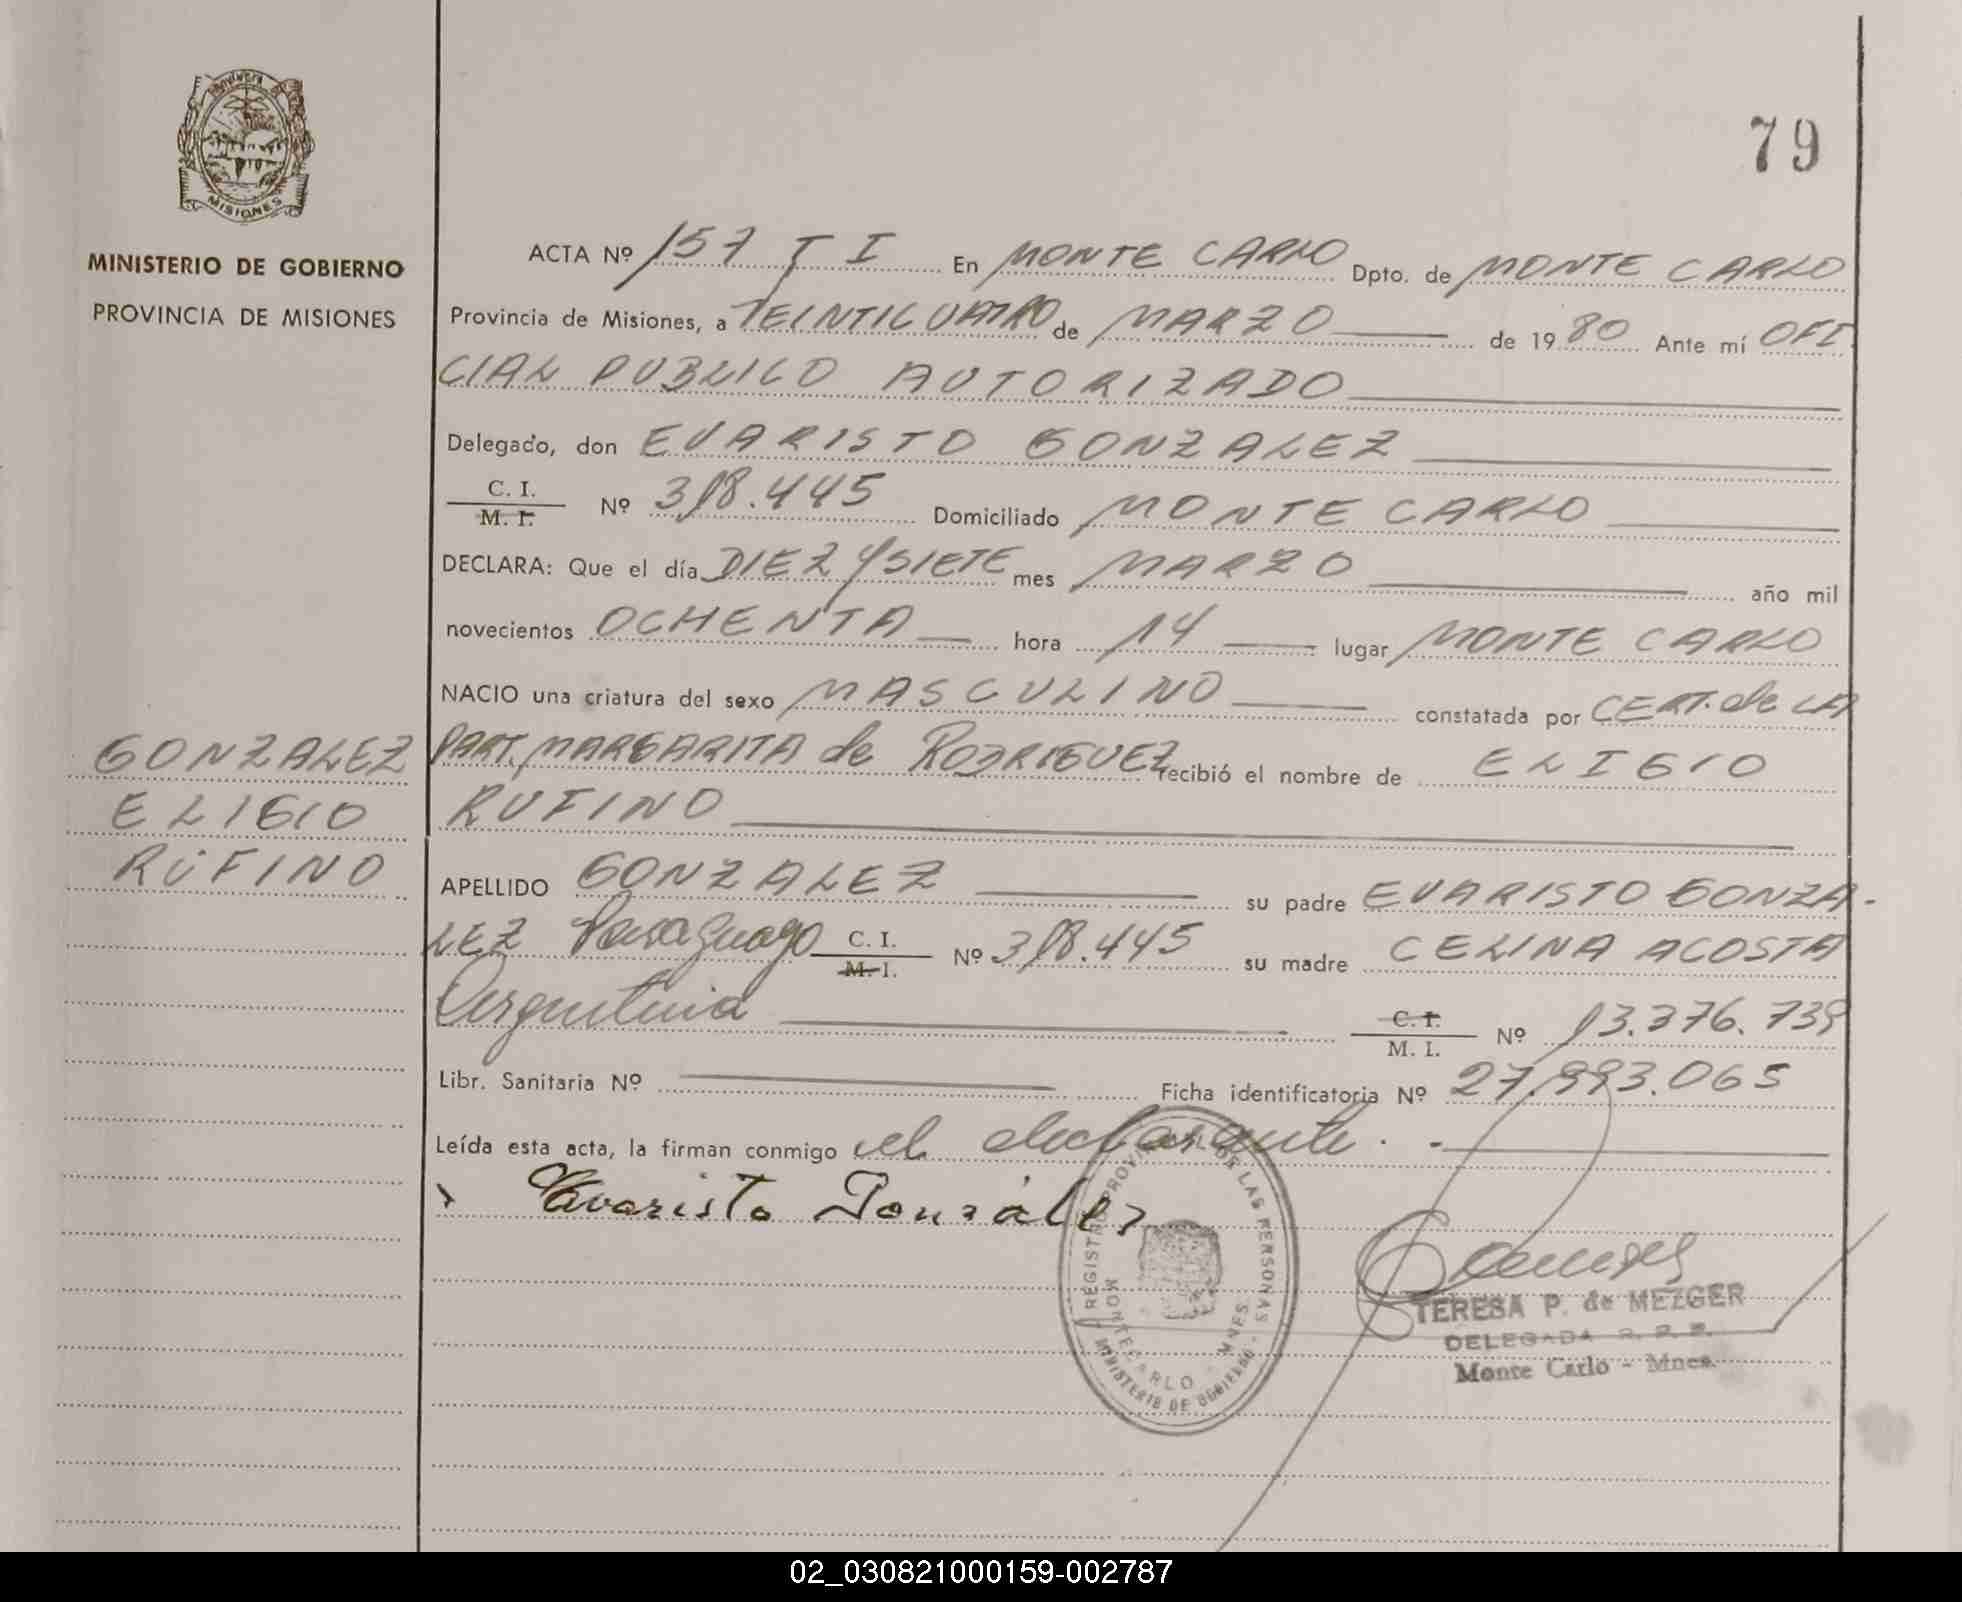 79
MISIONES
MINISTERIO DE GOBIERNO
PROVINCIA DE MISIONES
ACTA Nº 157 T I En MONTE CARLO Dpto. de MONTE CARLO
Provincia de Misiones, a VEINTICUATRO de MARZO de 1980 Ante mí OFI
CIAL PUBLICO AUTORIZADO
Delegado, don EVARISTO GONZALEZ
C. I.
M. I. Nº 318.445 Domiciliado MONTE CARLO
DECLARA: Que el día DIEZ Y SIETE mes MARZO año mil
novecientos OCHENTA hora 14 lugar MONTE CARLO
NACIO una criatura del sexo MASCULINO constatada por CERT. de LA
PART. MARGARITA de RODRIGUEZ recibió el nombre de ELIGIO
RUFINO
GONZALEZ
ELIGIO
RUFINO
APELLIDO GONZALEZ su padre EVARISTO GONZA-
LEZ Paraguayo C. I.
M. I. Nº 318.445 su madre CELINA ACOSTA
Argentina C. I.
M. I. Nº 13.376.739
Libr. Sanitaria Nº Ficha identificatoria Nº 27.993.065
Leída esta acta, la firman conmigo el declarante.
Evaristo González
REGISTRO PROVINCIAL DE LAS PERSONAS
MONTECARLO - MNES.
MINISTERIO DE GOBIERNO
TERESA P. de MEZGER
DELEGADA R. P. P.
Monte Carlo - Mnes.
02_030821000159-002787